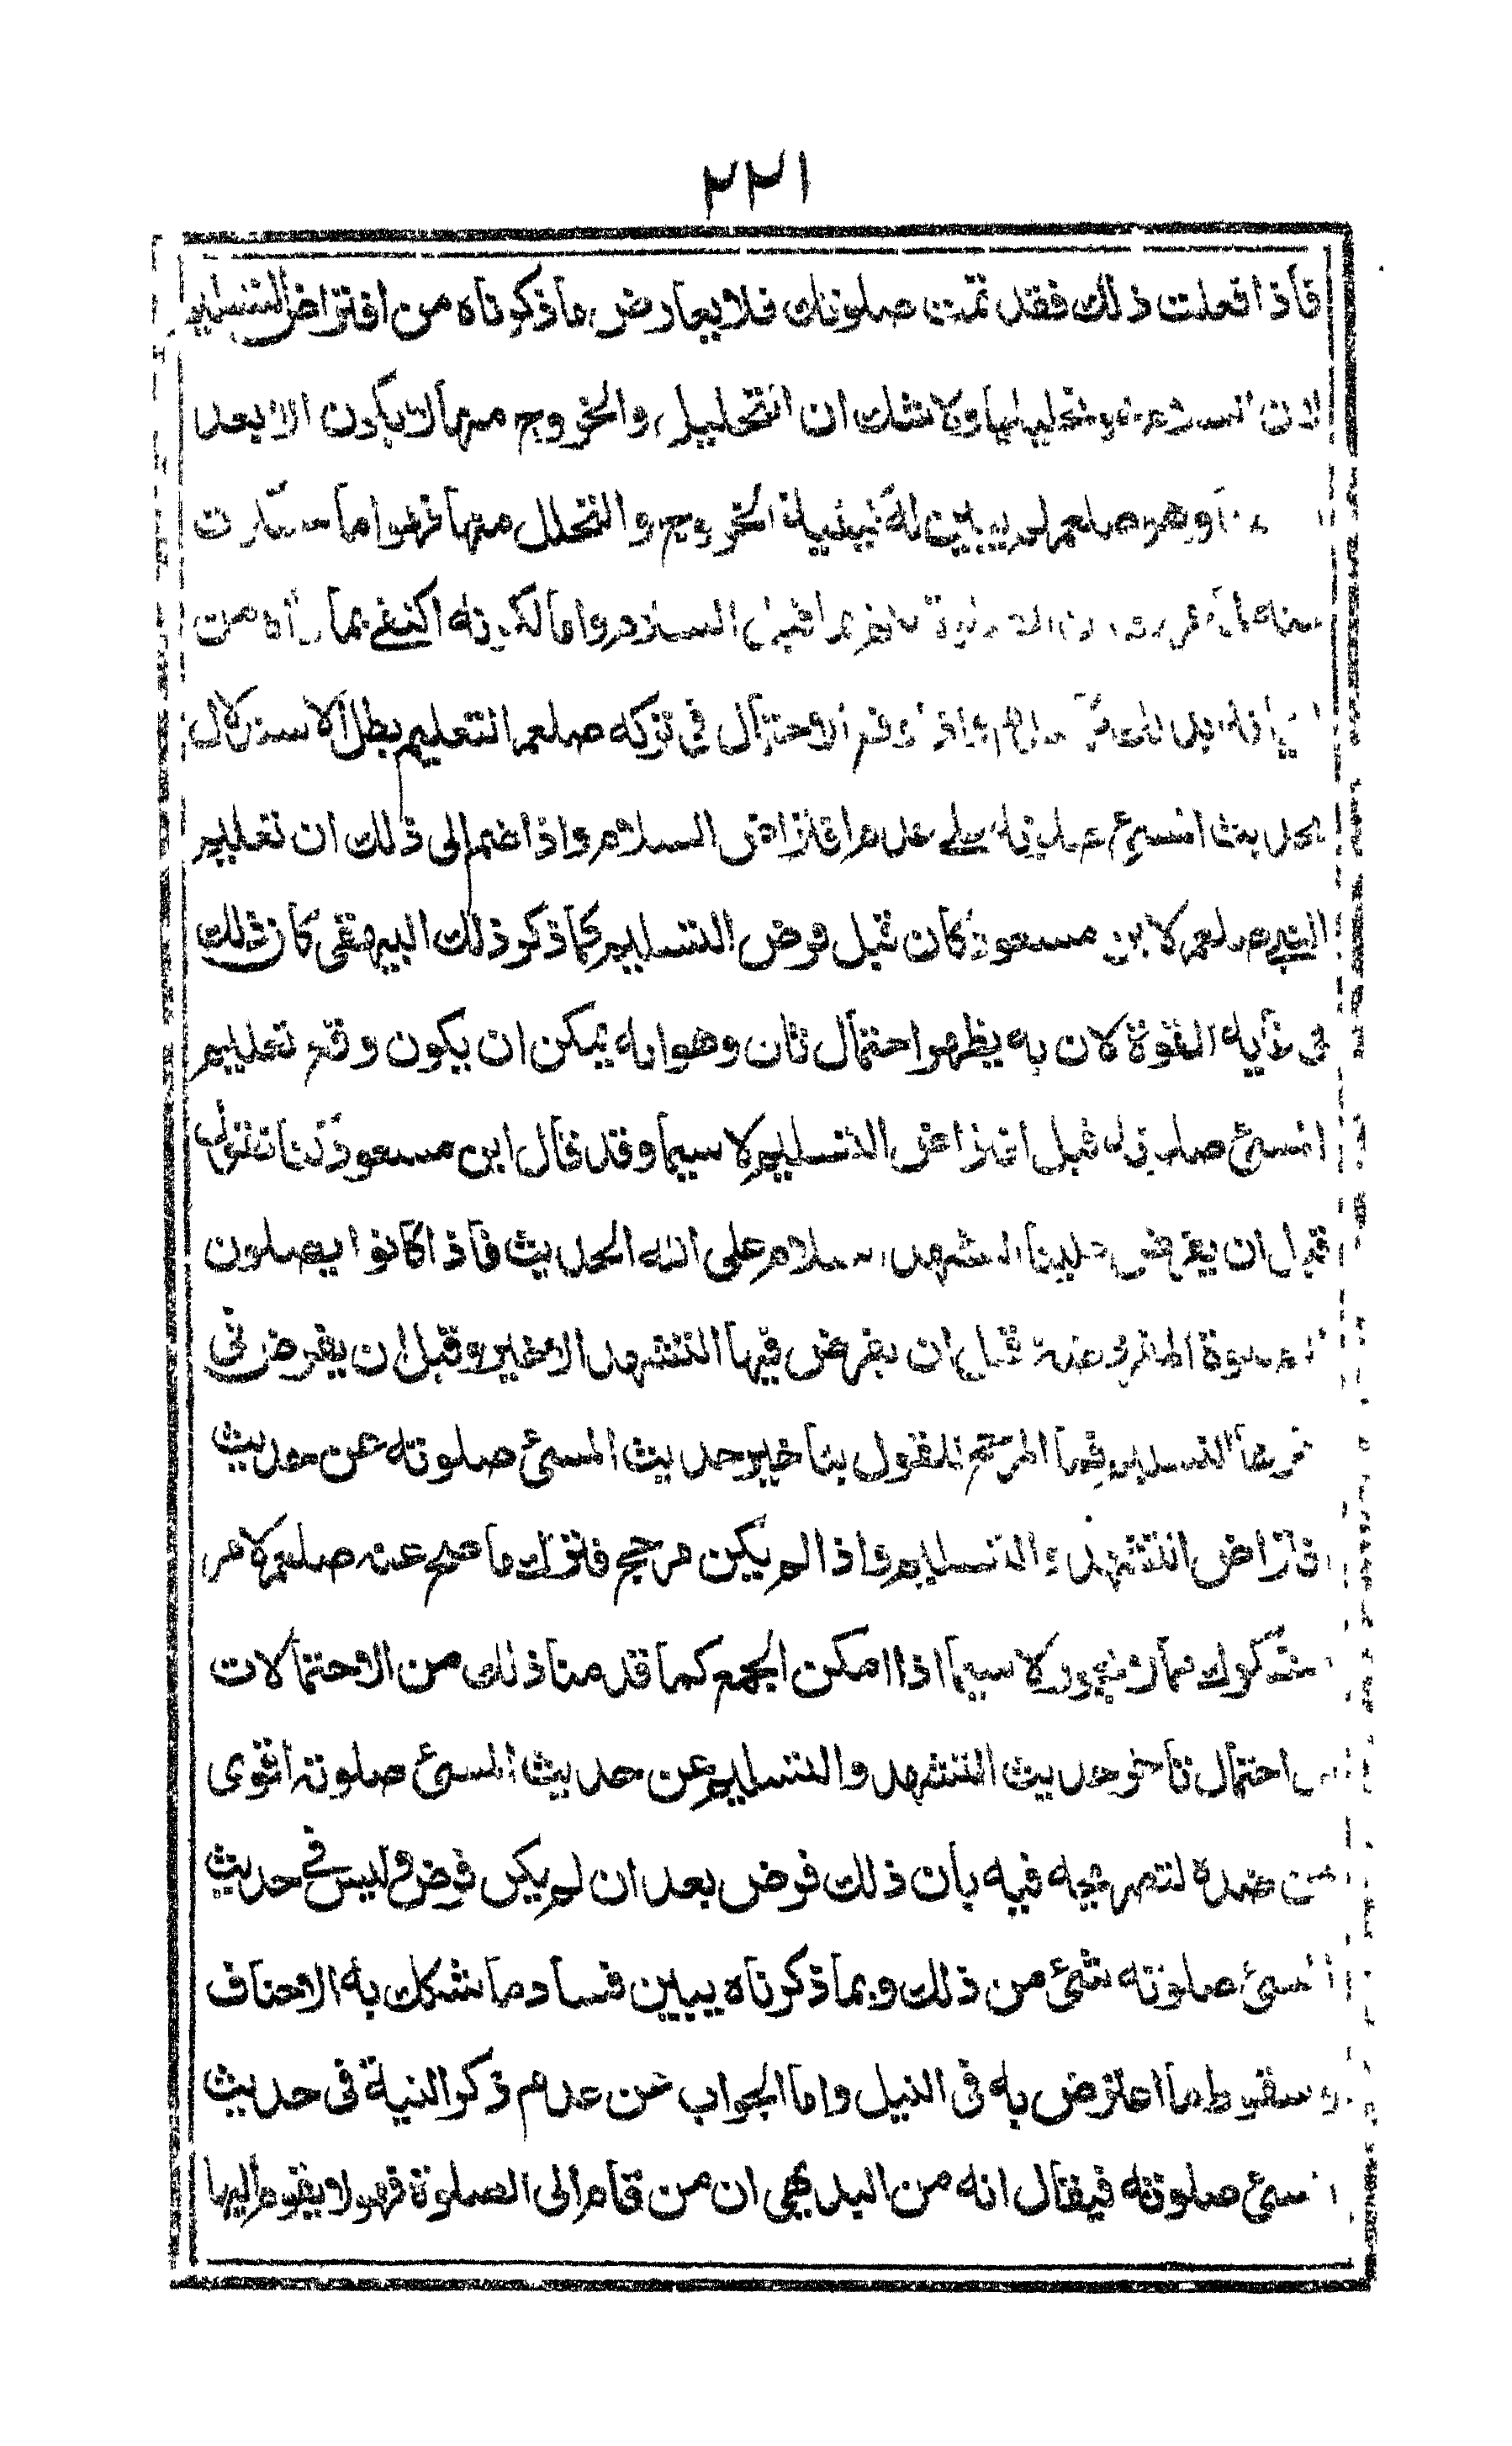 ٢٢١
فاذا فعلت ذلك فقد تمت صلوتك فلا يعارض ما ذكرناه من افتراض التسليم
لان تحليلها ولا شك ان التحليل والخروج منها لا يكون الا بعد
وهو صلعم لم يبين له كيفية الخروج والتحلل منها فهو اما
السلام واما لكونه اكتفى بما رآه من
الاحتمال في تركه صلعم التعليم بطل الاستدلال
بحديث المسئ صلوته على عدم افتراض السلام واذا ضم الى ذلك ان تعليم
النبي صلعم لابن مسعود كان قبل فرض التسليم كما ذكر ذلك البيهقى كان ذلك
فى غاية القوة لان به يظهر احتمال ثان وهو انه يمكن ان يكون وقع تعليم
المسئ صلوته قبل افتراض التسليم لا سيما وقد قال ابن مسعود كنا نقول
قبل ان يفرض علينا التشهد السلام على الله الحديث فاذا كانوا يصلون
الصلوة المفروضة قبل ان يفرض فيها التشهد الاخير وقبل ان يفرض فى
التسليم فما المرجح للقول بتاخير حديث المسئ صلوته عن حديث
افتراض التشهد والتسليم واذا لم يكن مرجح فترك ما صح عنه صلعم لامر
مشكوك لا يجوز لا سيما اذا امكن الجمع كما قدمنا ذلك من الاحتمالات
احتمال تاخر حديث التشهد والتسليم عن حديث المسئ صلوته اقوى
من ضده لتصريحه فيه بان ذلك فرض بعد ان لم يكن فرض وليس فى حديث
المسئ صلوته شئ من ذلك وبما ذكرناه يبين فساد ما شكك به الاحناف
وسقوط ما اعترض به فى النيل واما الجواب عن عدم ذكر النية فى حديث
المسئ صلوته فيقال انه من البديهى ان من قام الى الصلوة فهو لا يقوم اليها